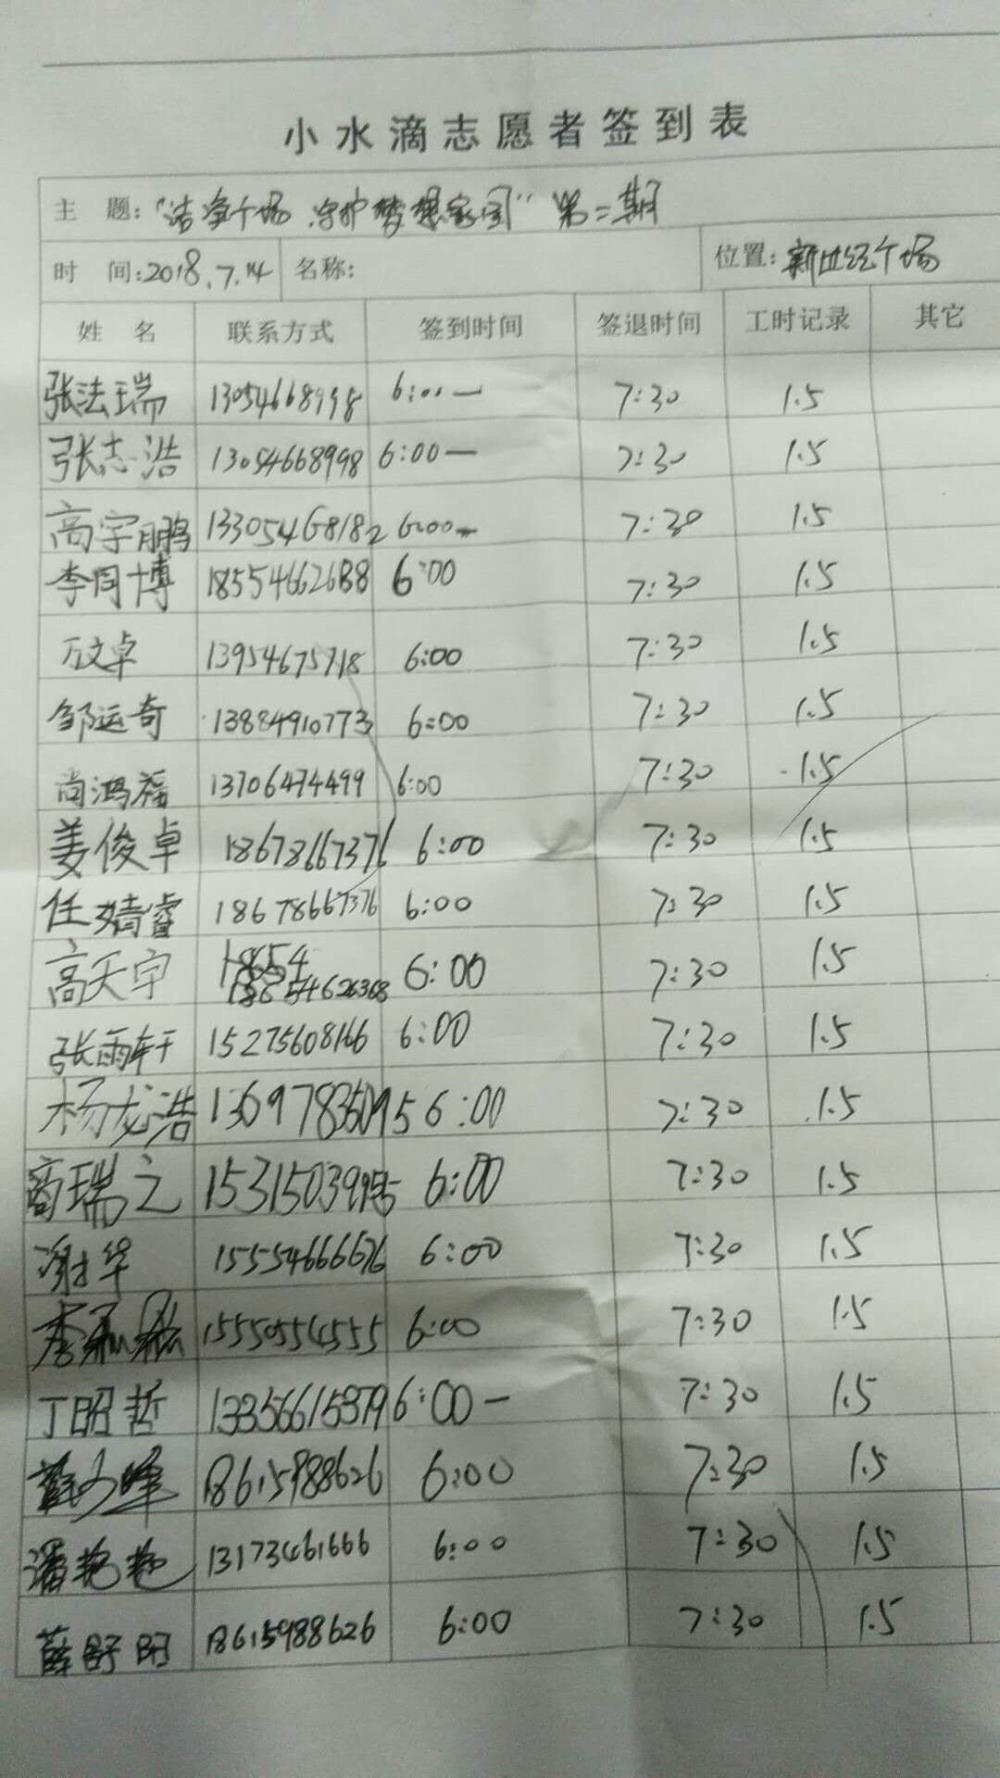 小水滴志愿者签到表
主 题："洁净广场 守护梦想家园"第二期
时 间：2018.7.14 名称： 位置：新世纪广场
姓 名 联系方式 签到时间 签退时间 工时记录 其它
张法瑞 13054668998 6:00— 7:30 1.5
张志浩 13054668998 6:00— 7:30 1.5
高宇鹏 13305468182 6:00- 7:30 1.5
李同博 6:00 7:30 1.5
万文卓 13954675718 6:00 7:30 1.5
邹运奇 13884910773 6:00 7:30 1.5
尚鸿福 13706474499 6:00 7:30 1.5
姜俊卓 18678667376 6:00 7:30 1.5
任婧睿 18678667376 6:00 7:30 1.5
高天宇 18654 18654626368 6:00 7:30 1.5
张雨轩 15275608166 6:00 7:30 1.5
杨龙浩 6:00 7:30 1.5
商瑞之 6:00 7:30 1.5
谢华 15554666676 6:00 7:30 1.5
李 15550554555 6:00 7:30 1.5
丁昭哲 13356615379 6:00- 7:30 1.5
18615988626 6:00 7:30 1.5
潘艳艳 13173461666 6:00 7:30 1.5
薛舒阳 18615988626 6:00 7:30 1.5